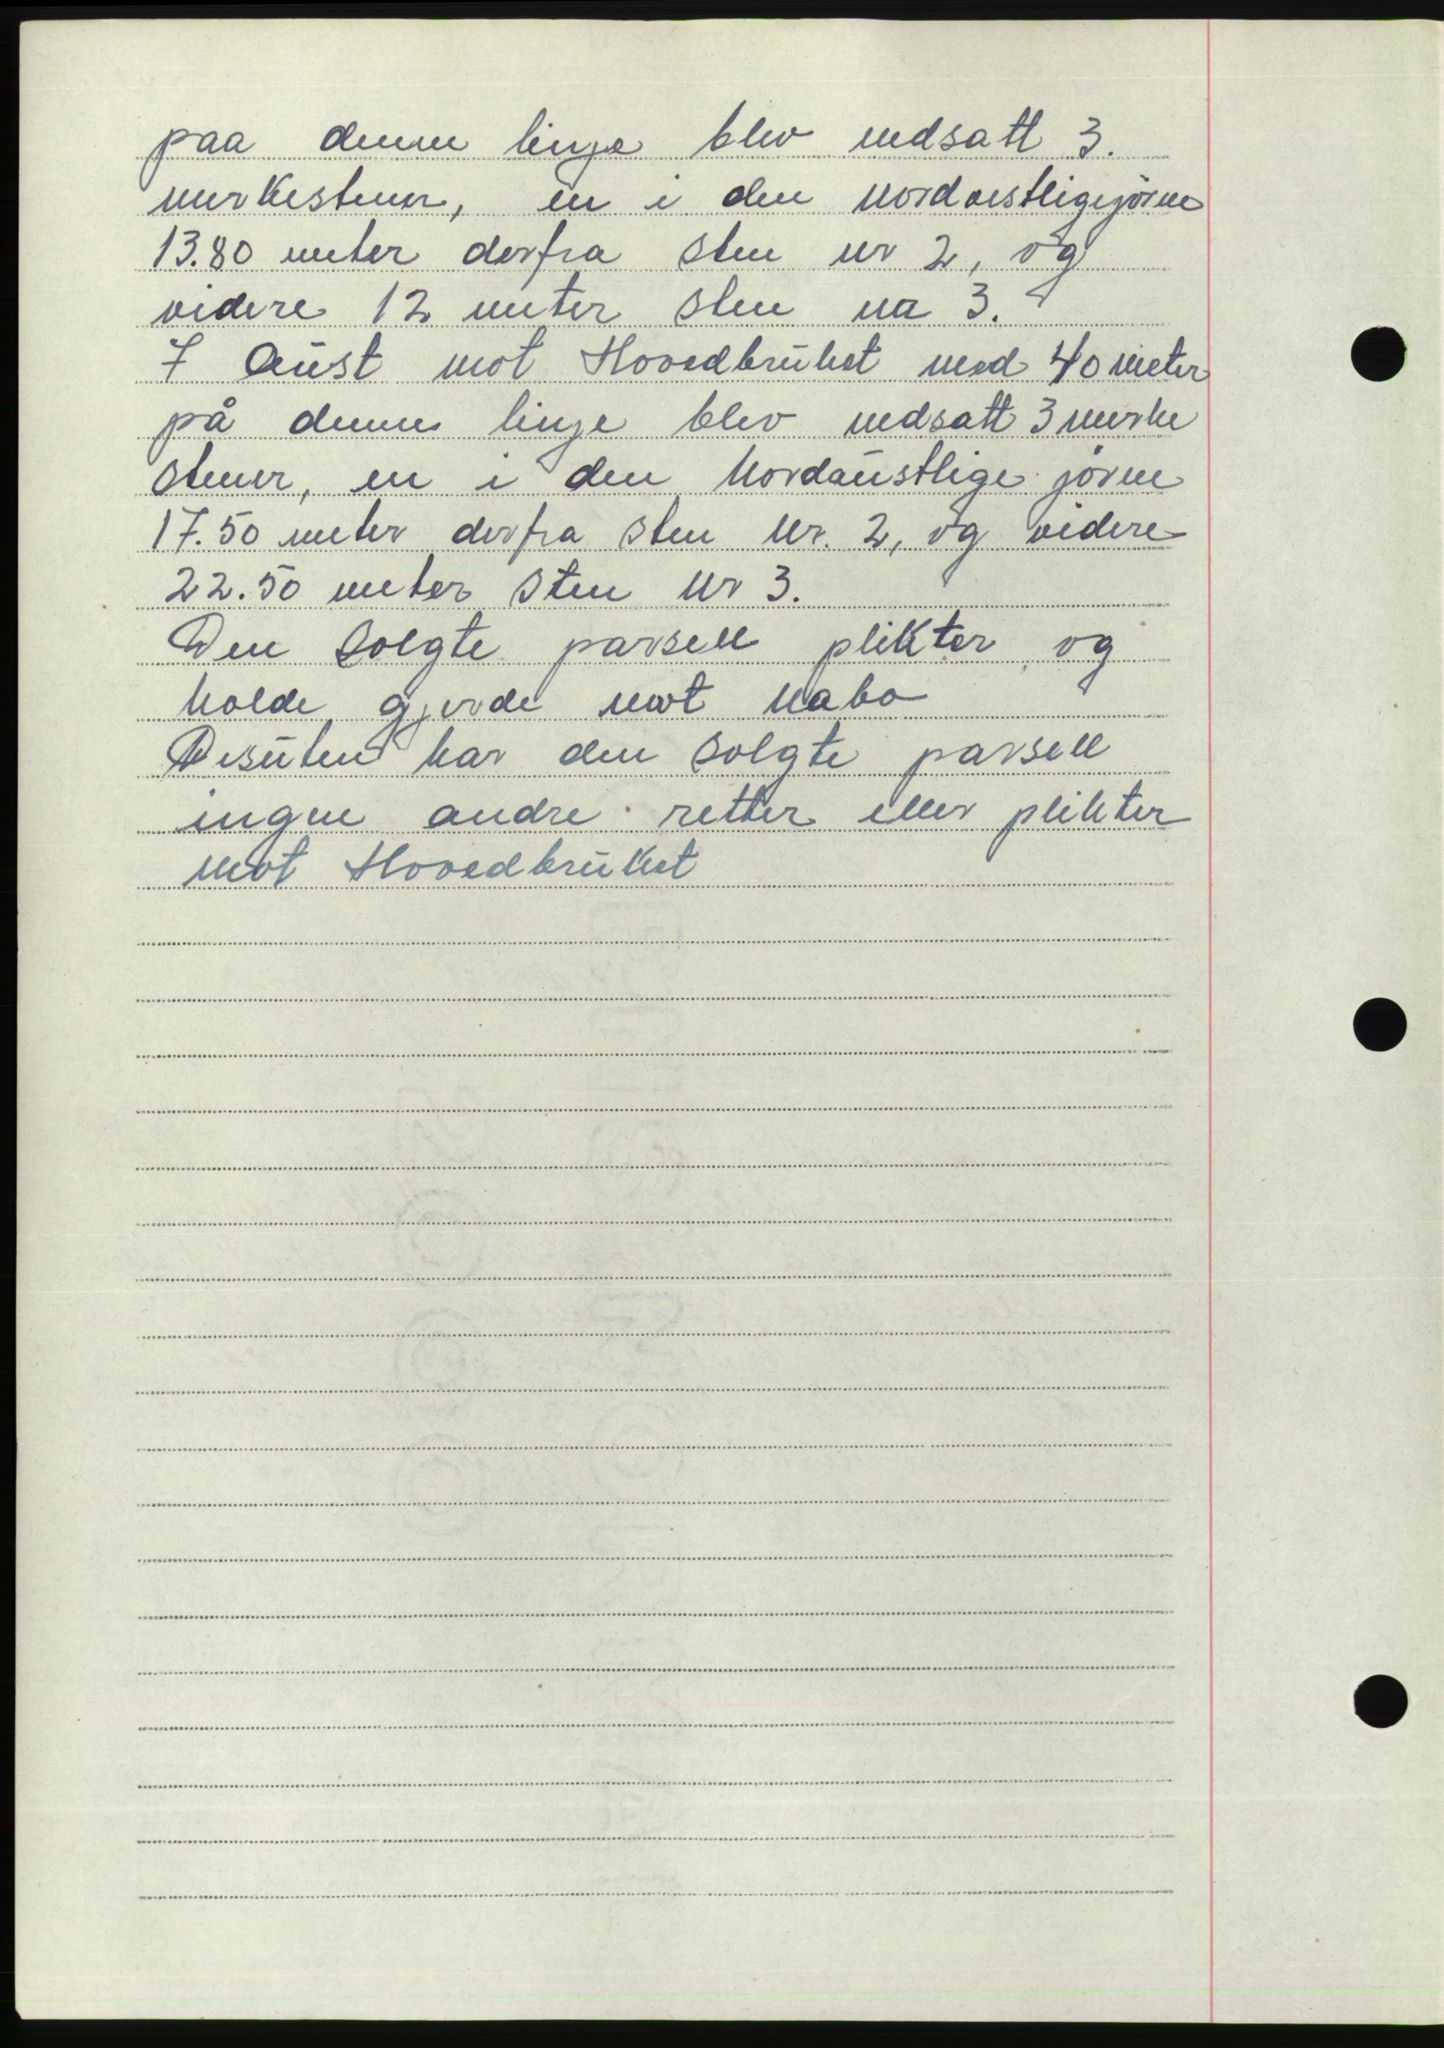 paa denne linje blev nedsatt 3.
merkestener, en i den nordvestligejörne
13.80 meter derfra sten nr 2, og
videre 12 meter sten na 3.
I Aust mot Hovedbruket med 40 meter
på denne linje blev nedsatt 3 merke
stener, en i den Nordaustlige jörne
17.50 meter derfra sten Nr. 2, og videre
22.50 meter sten Nr 3.
Den solgte parsell plikter og
holde gjerde mot Nabo
Desuten har den solgte parsell
ingen andre retter eller plikter
mot Hovedbruket